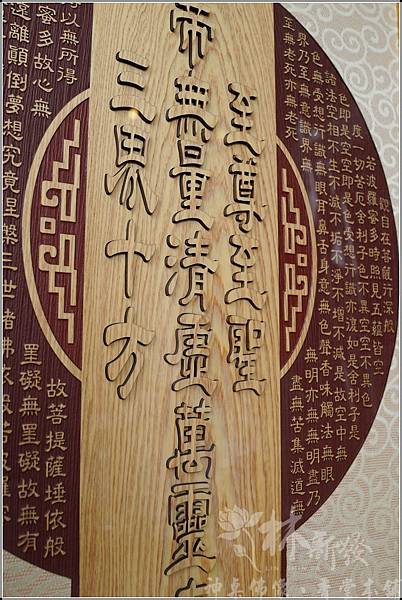 觀自在菩薩行深般
若波羅蜜多時照見五蘊皆空
度一切苦厄舍利子色不異空空不異色
色即是空空即是色受想行識亦復如是舍利子是
諸法空相不生不滅不垢不淨不增不減是故空中無
色無受想行識無眼耳鼻舌身意無色聲香味觸法無眼
界乃至無意識界無無明亦無無明盡乃
至無老死亦無老死盡無苦集滅道無
至尊至聖
帝無量清虛萬靈
三界十方
以無所得故菩提薩埵依般
蜜多故心無罣礙無罣礙故無有
遠離顛倒夢想究竟涅槃三世諸佛依般若波羅
林新發